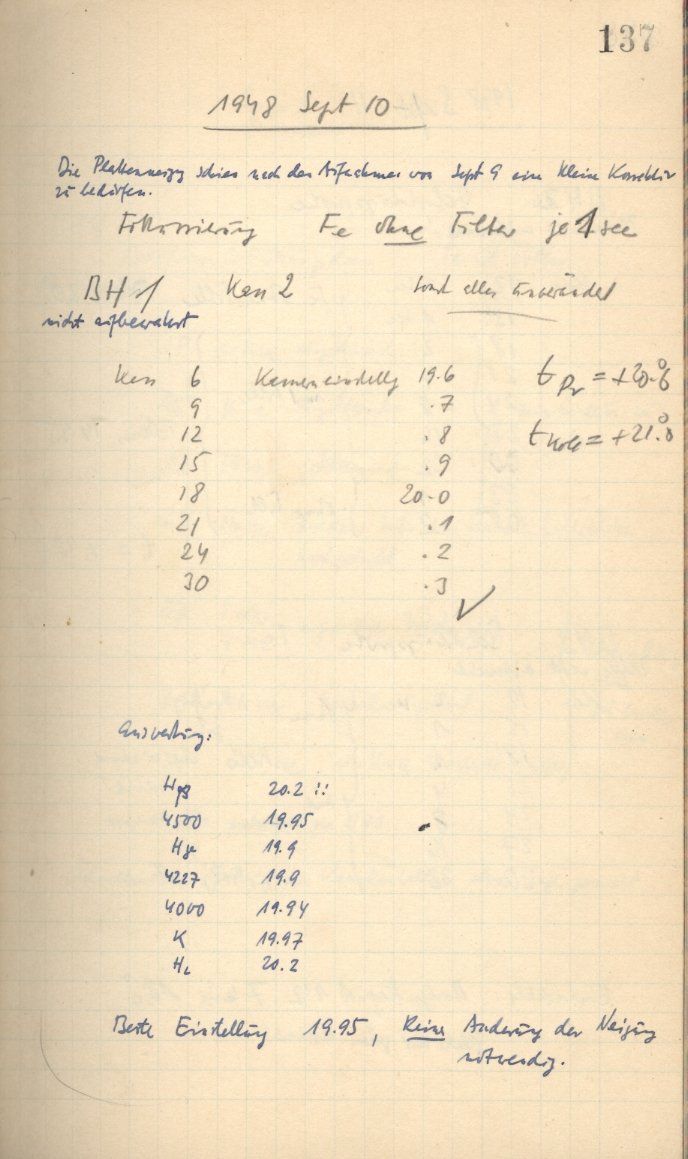 137
1948 Sept 10
Die Plattenneigung schien nach den Aufnahmen von Sept 9 eine kleine Korrektur
zu bedürfen.
Fokussierung Fe ohne Filter je 1 sec
BH 1 Kass 2 sonst alles unverändert
nicht aufbewahrt
Kass 6 Kameraeinstellg 19.6 t Pr = +20.°6
9 .7
12 .8 t Koll = +21.°0
15 .9
18 20.0
21 .1
24 .2
30 .3 ✓
Auswertung:
Hβ 20.2 !!
4500 19.95
Hγ 19.9
4227 19.9
4000 19.94
K 19.97
20.2
Beste Einstellung 19.95, Keine Änderung der Neigung
notwendig.